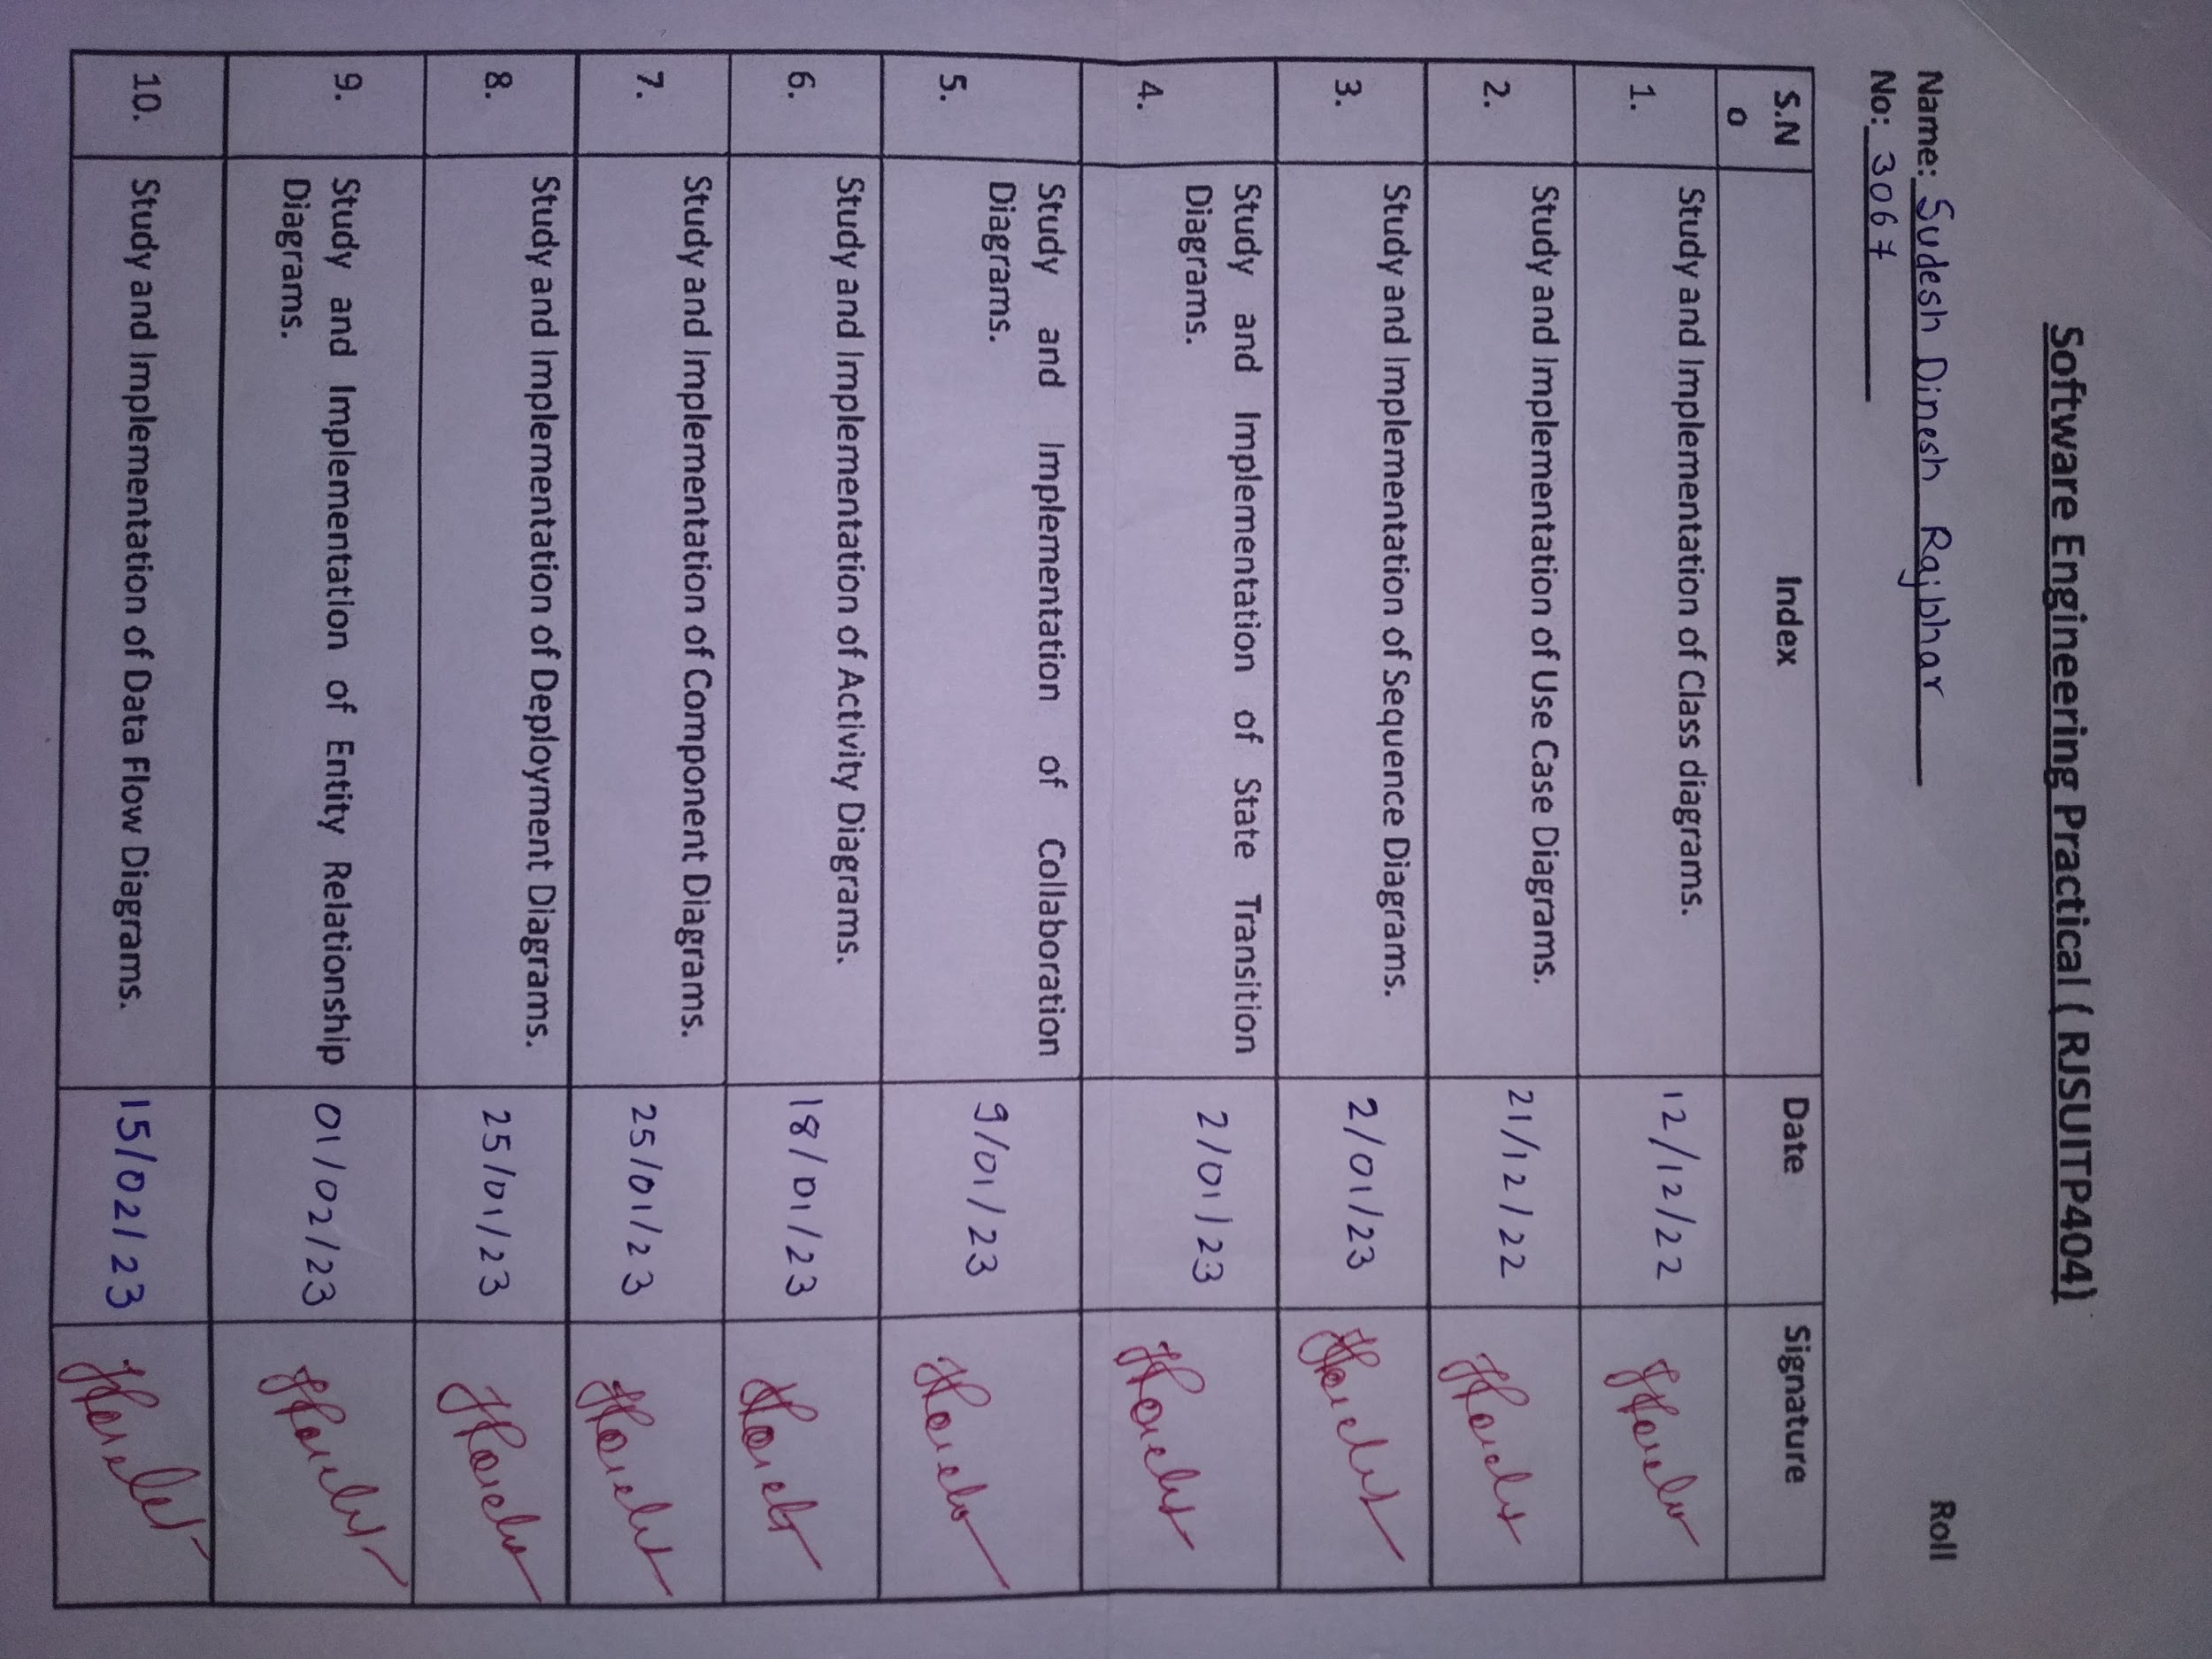 Software Engineering Practical ( RJSUITP404)
Name: Sudesh Dinesh Rajbhar Roll
No: 3067
S.N
o Index Date Signature
1. Study and Implementation of Class diagrams. 12/12/22
2. Study and Implementation of Use Case Diagrams. 21/12/22
3. Study and Implementation of Sequence Diagrams. 2/01/23
4. Study and Implementation of State Transition
Diagrams. 2/01/23
5. Study and Implementation of Collaboration
Diagrams. 9/01/23
6. Study and Implementation of Activity Diagrams. 18/01/23
7. Study and Implementation of Component Diagrams. 25/01/23
8. Study and Implementation of Deployment Diagrams. 25/01/23
9. Study and Implementation of Entity Relationship
Diagrams. 01/02/23
10. Study and Implementation of Data Flow Diagrams. 15/02/23